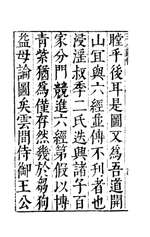 瞠乎後耳是圖又為吾道開
山宜與六經並傳不刊者也
浸淫叔季二氏迭興諸子百
家分門競進六經第假以博
青紫猶為僅存然幾於芻狗
益毋論圖矣雲間侍御王公